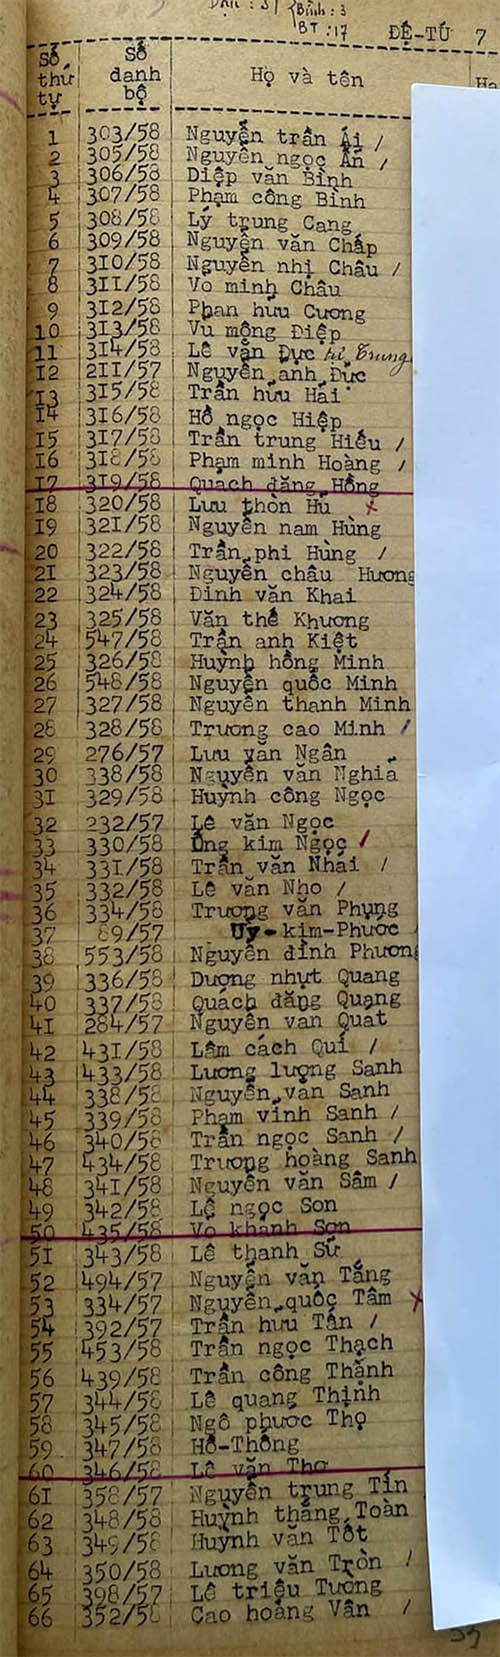 Bình : 3
BT : 17
ĐỆ-TỨ 7
Số thứ tự Số danh bộ Họ và tên
1 303/58 Nguyễn trần Ái /
2 305/58 Nguyễn ngọc Ấn /
3 306/58 Diệp văn Bình
4 307/58 Phạm công Bình
5 308/58 Lý trung Cang
6 309/58 Nguyễn văn Chấp
7 310/58 Nguyễn nhị Châu /
8 311/58 Vo minh Châu
9 312/58 Phan hữu Cương
10 313/58 Vu mộng Điệp
11 314/58 Lê văn Đực Trung
12 211/57 Nguyễn anh Đực
13 315/58 Trần hữu Hải
14 316/58 Hồ ngọc Hiệp
15 317/58 Trần trung Hiếu /
16 318/58 Phạm minh Hoàng /
17 319/58 Quách đăng Hồng
18 320/58 Lưu thòn Hủ x
19 321/58 Nguyễn nam Hùng
20 322/58 Trần phi Hùng /
21 323/58 Nguyễn châu Hương
22 324/58 Đinh văn Khai
23 325/58 Văn thế Khương
24 547/58 Trần anh Kiệt
25 326/58 Huỳnh hồng Minh
26 548/58 Nguyễn quốc Minh
27 327/58 Nguyễn thanh Minh
28 328/58 Trương cao Minh /
29 276/57 Lưu văn Ngân
30 338/58 Nguyễn văn Nghia
31 329/58 Huỳnh công Ngọc
32 232/57 Lê văn Ngọc
33 330/58 Ông kim Ngọc /
34 331/58 Trần văn Nhái /
35 332/58 Lê văn Nho /
36 334/58 Trương văn Phụng
37 89/57 Uy-kim-Phước /
38 553/58 Nguyễn đình Phương
39 336/58 Dượng nhựt Quang
40 337/58 Quách đăng Quang
41 284/57 Nguyễn van Quát
42 431/58 Lâm cách Quí /
43 433/58 Lương lượng Sanh
44 338/58 Nguyễn văn Sanh
45 339/58 Phạm vinh Sanh /
46 340/58 Trần ngọc Sanh /
47 434/58 Trương hoàng Sanh
48 341/58 Nguyễn văn Sâm /
49 342/58 Lê ngọc Son
50 435/58 Vo khánh Sơn
51 343/58 Lê thanh Sử
52 494/57 Nguyễn văn Tảng
53 334/57 Nguyễn quốc Tâm x
54 392/57 Trần hưu Tấn /
55 453/58 Trần ngọc Thạch
56 439/58 Trần công Thành
57 344/58 Lê quang Thịnh
58 345/58 Ngô phước Thọ
59 347/58 Hồ-Thống
60 346/58 Lê văn Thơ
61 358/57 Nguyễn trung Tín
62 348/58 Huỳnh thắng Toàn
63 349/58 Huỳnh văn Tốt
64 350/58 Lương văn Tròn /
65 398/57 Lê triệu Tường
66 352/58 Cao hoàng Vân /